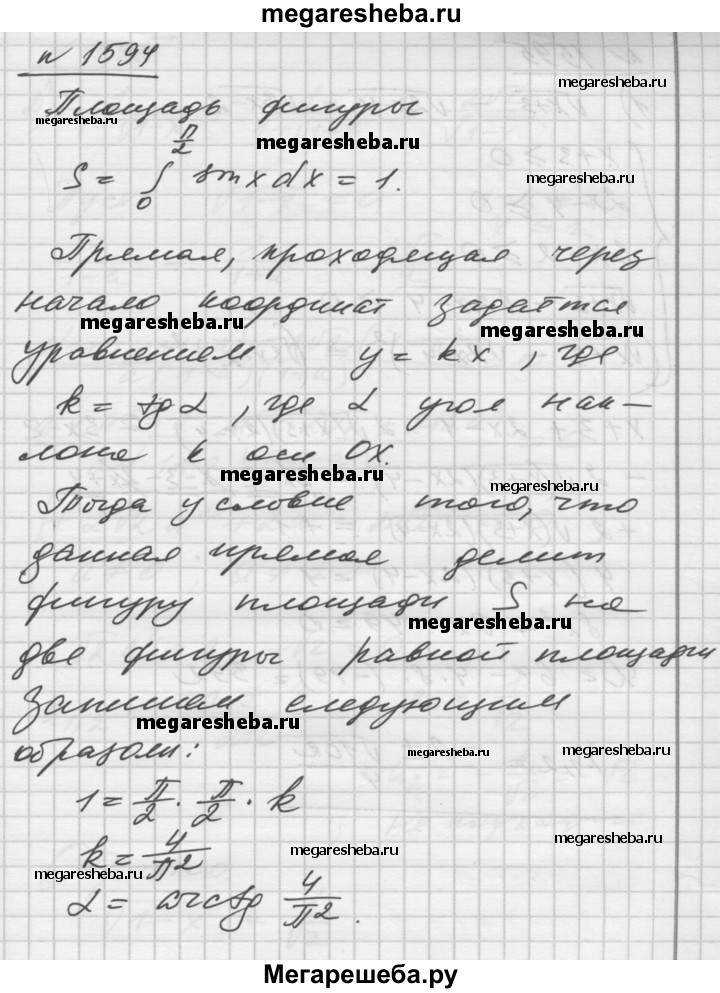 megaresheba.ru
n 1594
megaresheba.ru
Площадь фигуры
megaresheba.ru
megaresheba.ru
S = ∫₀^(π/2) sin x dx = 1.
megaresheba.ru
Прямая, проходящая через
начало координат задаётся
megaresheba.ru
megaresheba.ru
уравнением y = kx, где
k = tg α, где α угол нак-
лона к оси Ox.
megaresheba.ru
megaresheba.ru
Тогда условие того, что
данная прямая делит
фигуру площади S на
megaresheba.ru
две фигуры равной площади
запишем следующим
megaresheba.ru
образом:
megaresheba.ru
megaresheba.ru
1 = π/2 · π/2 · k
megaresheba.ru
k = 4/π2
megaresheba.ru
megaresheba.ru
α = arctg 4/π2.
Мегарешеба.ру